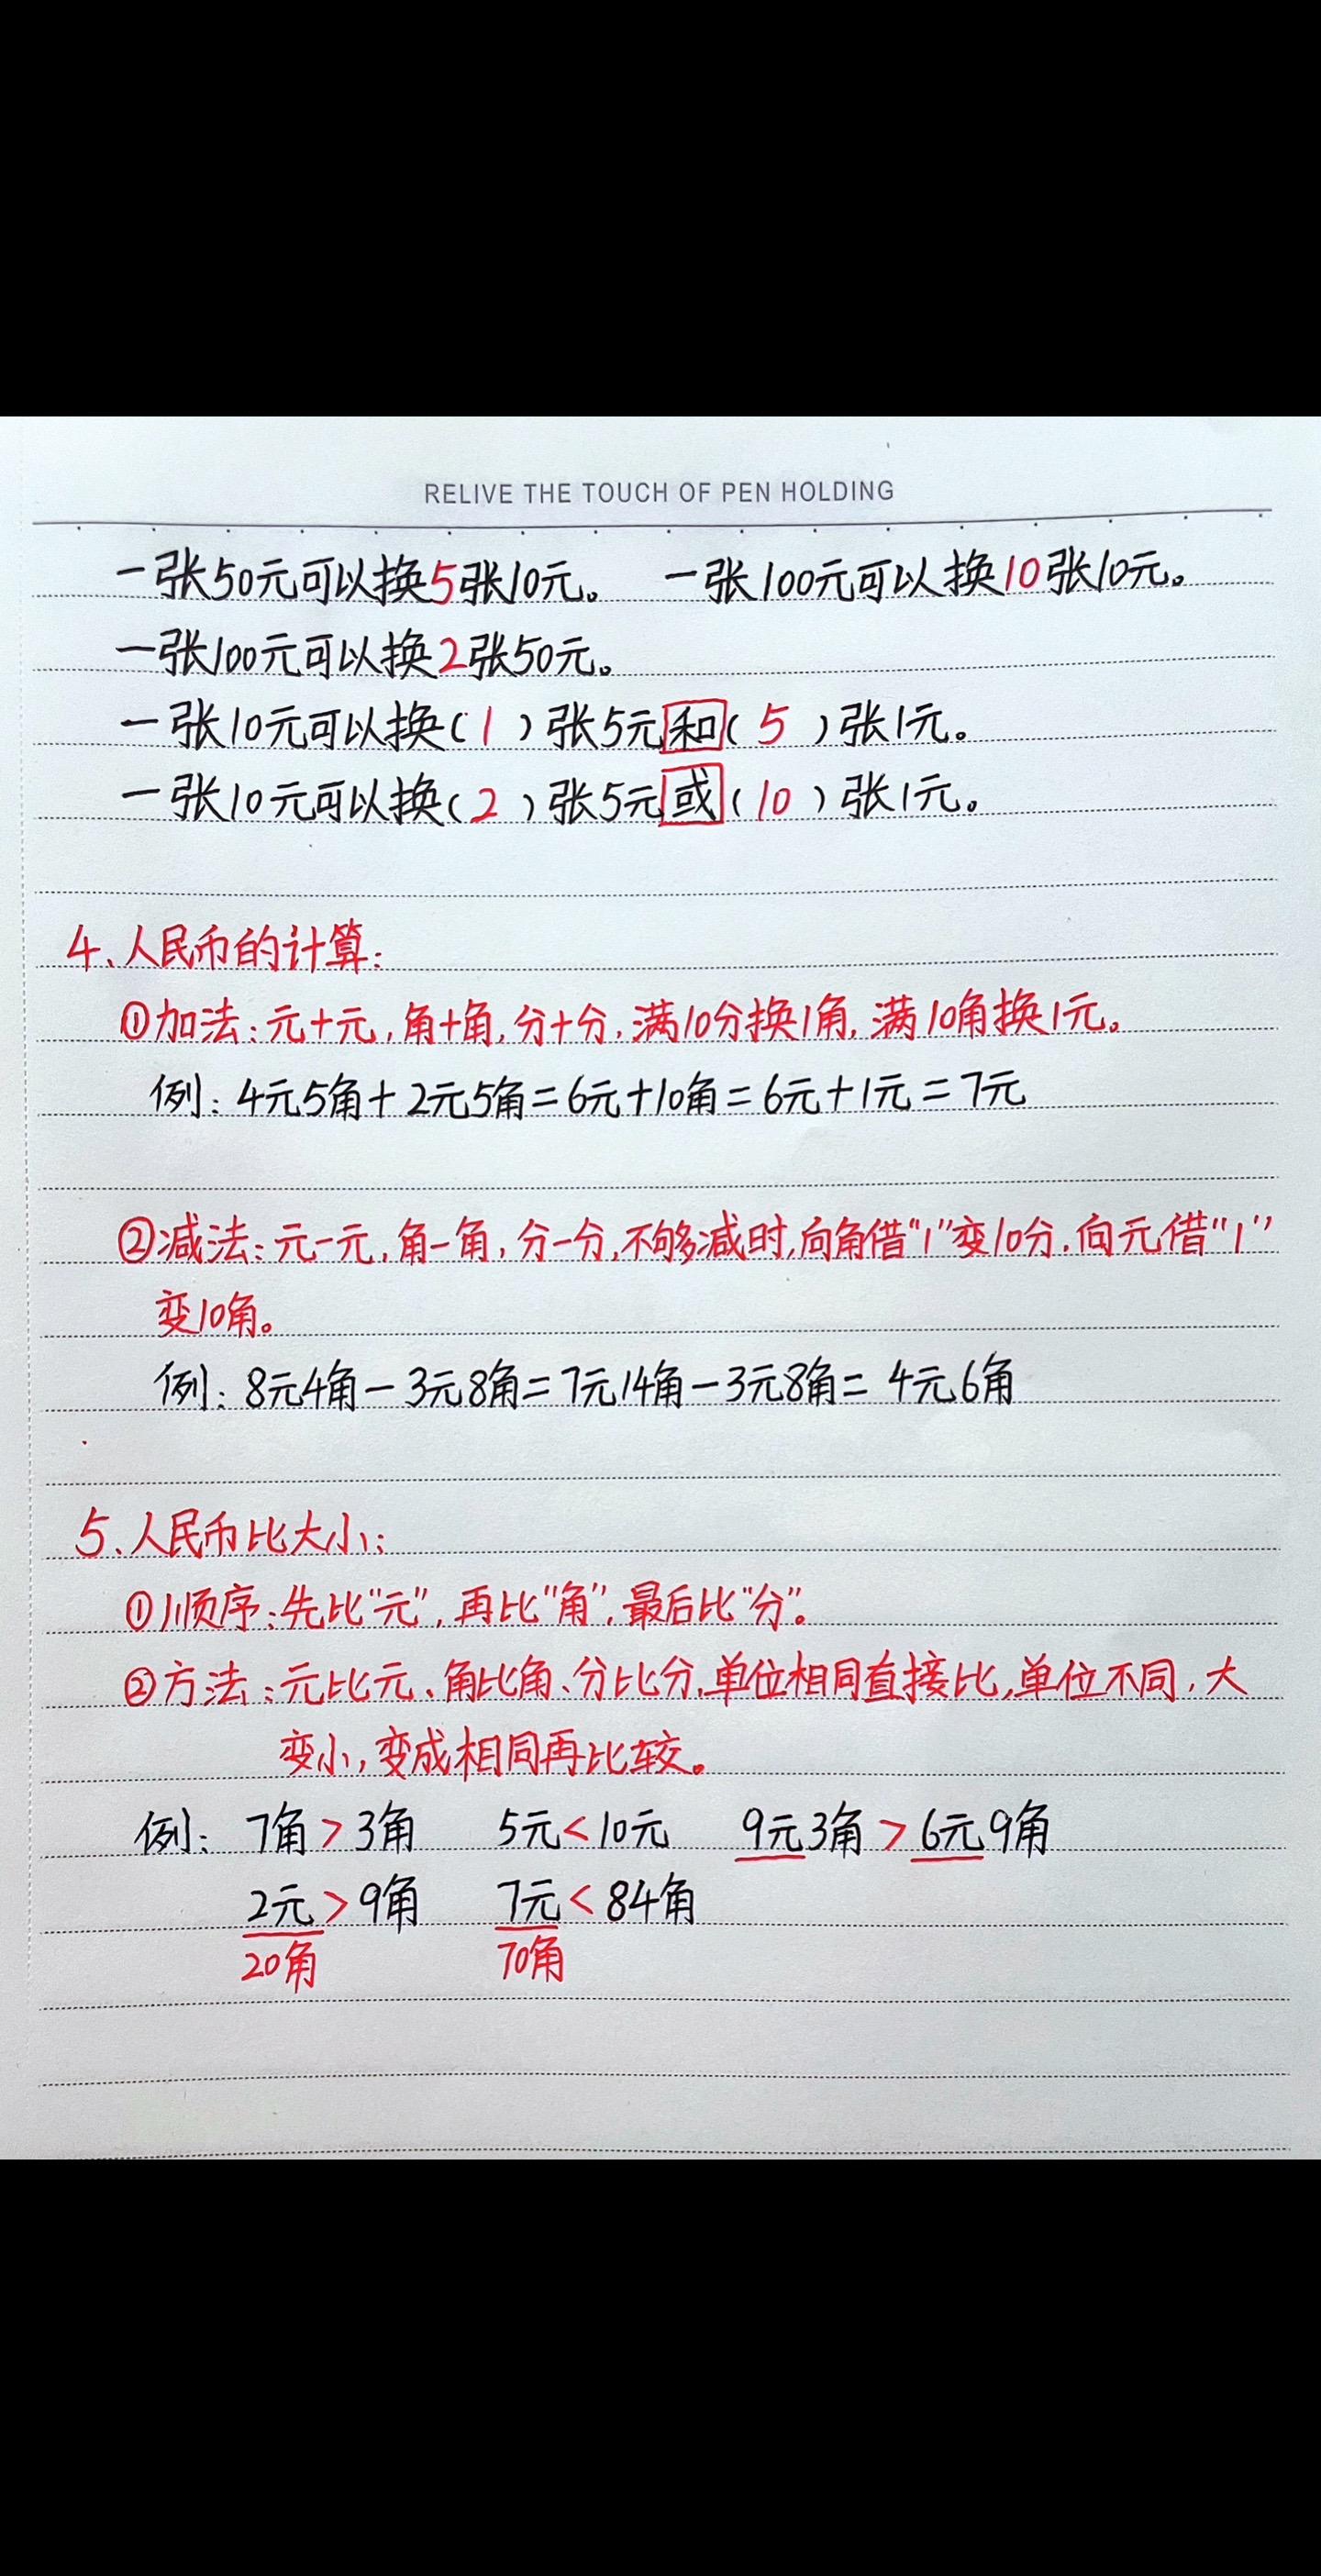 RELIVE THE TOUCH OF PEN HOLDING
一张50元可以换5张10元。 一张100元可以换10张10元。
一张100元可以换2张50元。
一张10元可以换(1)张5元和(5)张1元。
一张10元可以换(2)张5元或(10)张1元。
4、人民币的计算:
①加法:元+元,角+角,分+分,满10分换1角,满10角换1元。
例:4元5角+2元5角=6元+10角=6元+1元=7元
②减法:元-元,角-角,分-分,不够减时,向角借“1”变10分,向元借“1”
变10角。
例:8元4角-3元8角=7元14角-3元8角=4元6角
5、人民币比大小:
①顺序:先比“元”,再比“角”,最后比“分”。
②方法:元比元、角比角、分比分,单位相同直接比,单位不同,大
变小,变成相同再比较。
例:7角>3角 5元<10元 9元3角>6元9角
2元>9角 7元<84角
20角 70角